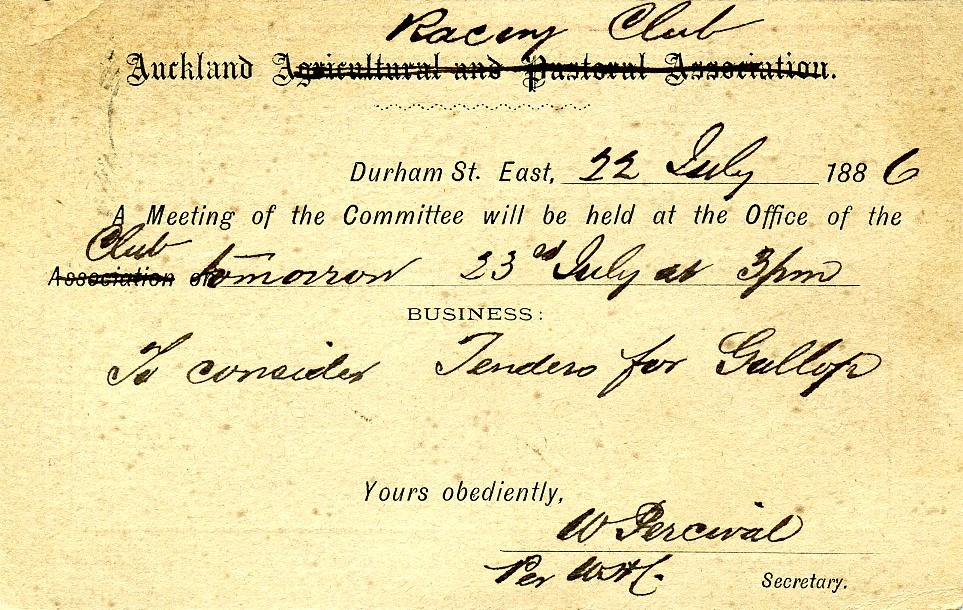 Racing Club
Auckland Agricultural and Pastoral Association.
Durham St. East, 22 July 1886
A Meeting of the Committee will be held at the Office of the
Club
Association on tomorrow 23rd July at 3pm
BUSINESS:
To consider Tenders for Gallop
Yours obediently,
W Percival
Per WHC.
Secretary.